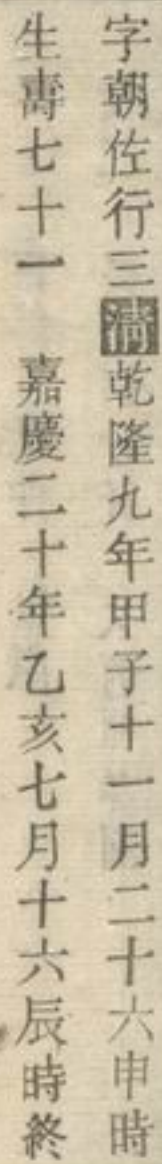 字朝佐行三清乾隆九年甲子十一月二十六申時
生壽七十一　嘉慶二十年乙亥七月十六辰時終